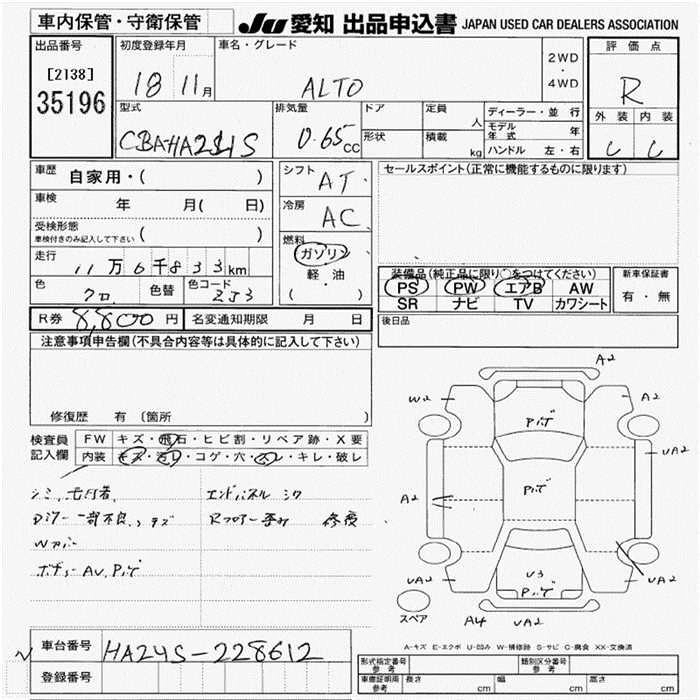 車内保管・守衛保管
JU 愛知 出品申込書 JAPAN USED CAR DEALERS ASSOCIATION
出品番号
[2138]
35196
初度登録年月
18 11月
車名・グレード
ALTO
2WD
・
4WD
評価点
R
型式
排気量
0.65cc
ドア
形状
定員
人
積載
kg
ディーラー・並行
モデル年式 年
ハンドル 左・右
外装 内装
C C
車歴
自家用・( )
車検
年 月( 日)
受検形態
車検付きのみ記入して下さい ( )
走行
11万6千833km
色
クロ
色替
色コード
ZJ3
シフト
AT
冷房
AC
燃料
ガソリン
軽・油
( )
セールスポイント(正常に機能するものに限ります)
装備品(純正品に限り○をつけてください)
PS PW エアB AW
SR ナビ TV カワシート
新車保証書
有・無
後日品
R券 8,800円
名変通知期限 月 日
注意事項申告欄(不具合内容等は具体的に記入して下さい)
修復歴 有 (箇所
検査員
記入欄
FW キズ・飛石・ヒビ割・リペア跡・X要
内装 キズ・汚レ・コゲ・穴・スレ・キレ・破レ
エンドパネル
Rフロアー 歪み 修復
Wカバー
ボデーAU, Pハゲ
A2
W2
A2
Pハゲ
UA2
A2
Pハゲ
UA2
U3
Pハゲ
UA2
スペア
A4
UA2
A-キズ E-エクボ U-凹み W-補修跡 S-サビ C-腐食 XX-交換済
車台番号
HA24S-228612
登録番号
型式指定番号
参考
類別区分番号
参考
車庫証明用
参考
長さ cm 幅 cm 高さ cm